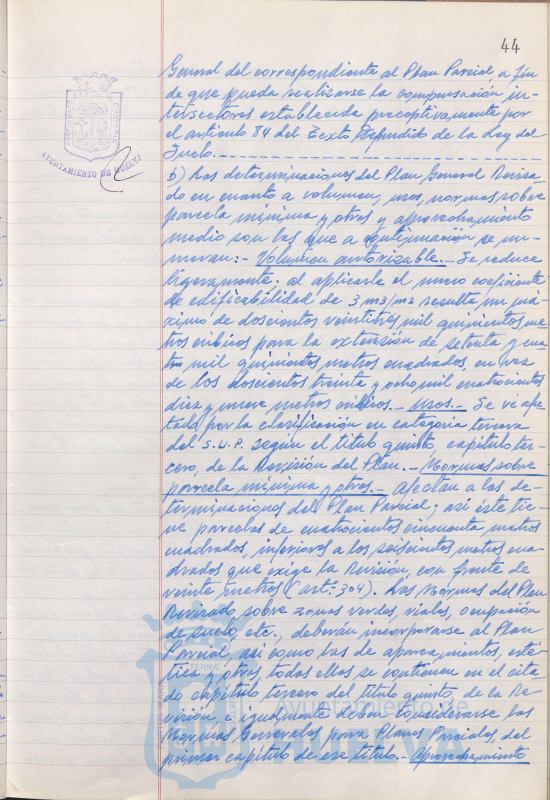 44
General del correspondiente al Plan Parcial a fin
de que pueda realizarse la compensación in-
tersectores establecida preceptivamente por
el artículo 84 del Texto Refundido de la Ley del
Suelo.
AYUNTAMIENTO DE HUELVA
b) Las determinaciones del Plan General Revisa-
do en cuanto a volumen, usos, normas sobre
parcela mínima y otras y aprovechamiento
medio son las que a continuación se enu-
meran:- Volumen autorizable.- Se reduce
ligeramente: al aplicarle el nuevo coeficiente
de edificabilidad de 3 m3/m2 resulta un má-
ximo de doscientos veintitres mil quinientos me-
tros cúbicos para la extensión de setenta y cua-
tro mil quinientos metros cuadrados, en vez
de los doscientos treinta y ocho mil cuatrocientos
diez y nueve metros cúbicos.- Usos.- Se ve afec-
tada por la clasificación en categoría tercera
del S.U.P. según el título quinto, capítulo ter-
cero, de la Revisión del Plan.- Normas sobre
parcela mínima y otras.- Afectan a las de-
terminaciones del Plan Parcial; así éste tie-
ne parcelas de cuatrocientos cincuenta metros
cuadrados, inferiores a los seiscientos metros cua-
drados que exige la Revisión, con frente de
veinte metros (art: 304). Las Normas del Plan
Revisado sobre zonas verdes, viales, ocupación
de suelo, etc., deberán incorporarse al Plan
Parcial, así como las de aparcamientos, esté-
tica y otras, todas ellas se contienen en el cita-
do capítulo tercero del título quinto de la Re-
visión, e igualmente deben considerarse las
Normas Generales para Planes Parciales del
primer capítulo de ese título.- Aprovechamiento
Ayuntamiento de
HUELVA